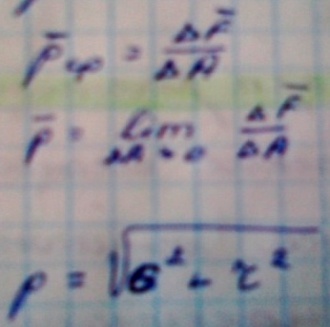 p̄ср = ΔF̄/ΔA
p̄ = lim ΔA→0 ΔF̄/ΔA
p = √(σ² + τ²)